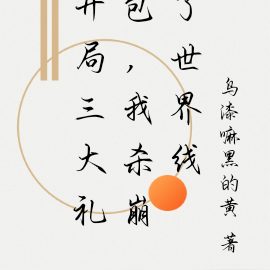 开局三大礼
包，我杀崩
了世界线
乌漆嘛黑的黄 著